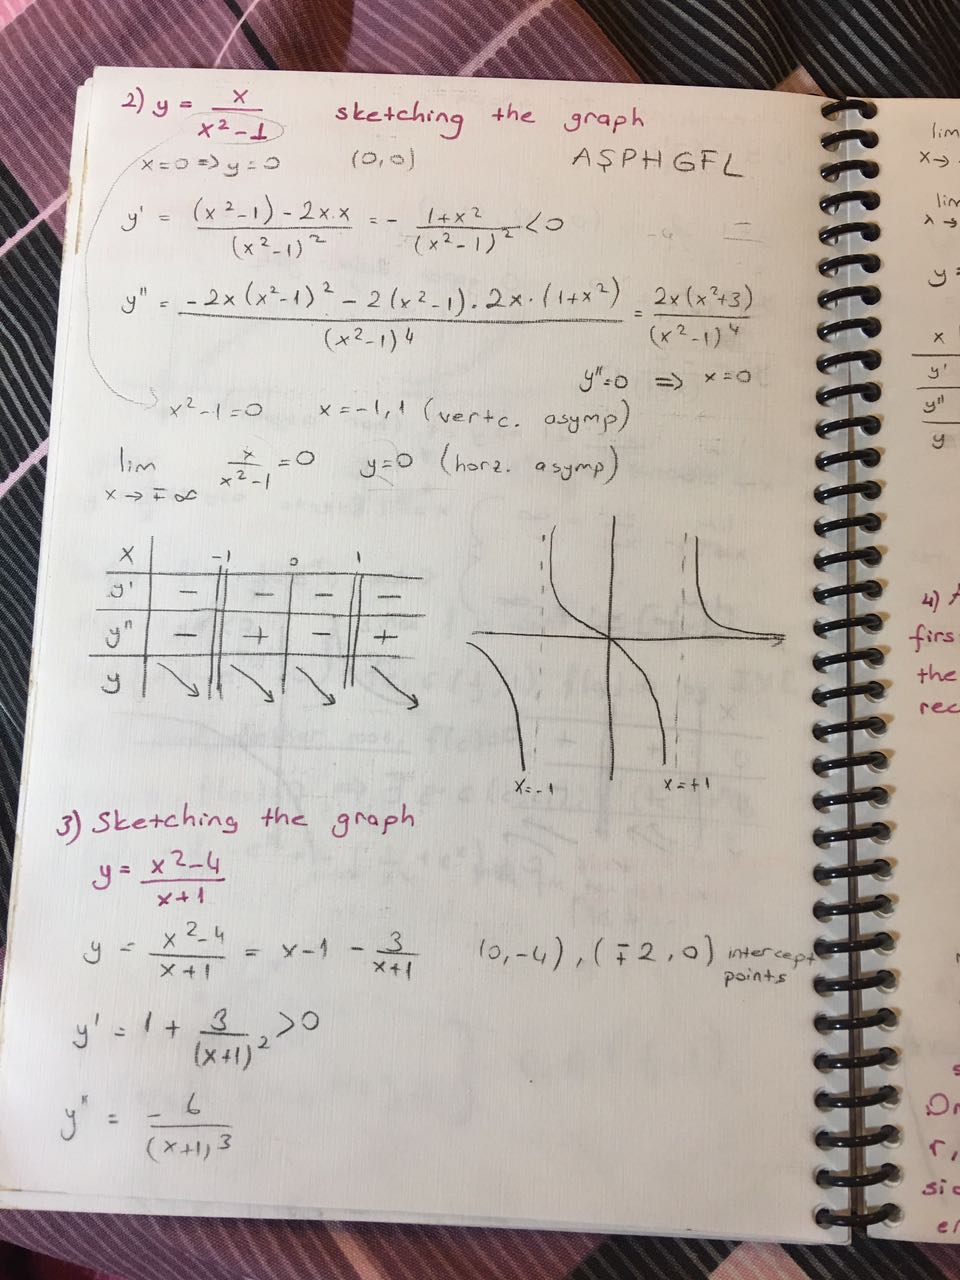 2) y = x / (x² - 1)   sketching the graph
x=0 => y=0   (0,0)   AŞPHGFL
y' = ((x²-1) - 2x.x) / (x²-1)² = - (1+x²) / (x²-1)² < 0
y'' = (-2x(x²-1)² - 2(x²-1).2x.(1+x²)) / (x²-1)⁴ = 2x(x²+3) / (x²-1)⁴
y''=0 => x=0
x²-1=0   x=-1,1 (vertc. asymp)
lim x→∓∞ x / (x²-1) = 0   y=0 (horz. asymp)
x | -1 0 1
y' | - - - -
y'' | - + - +
y | ↘ ↘ ↘ ↘
x=-1   x=+1
3) Sketching the graph
y = (x²-4) / (x+1)
y = (x²-4) / (x+1) = x-1 - 3 / (x+1)   (0,-4), (∓2,0) intercept points
y' = 1 + 3 / (x+1)² > 0
y'' = -6 / (x+1)³
lim
x→
lim
x→
y=
x
y'
y''
y
4)
firs
the
rec
r,